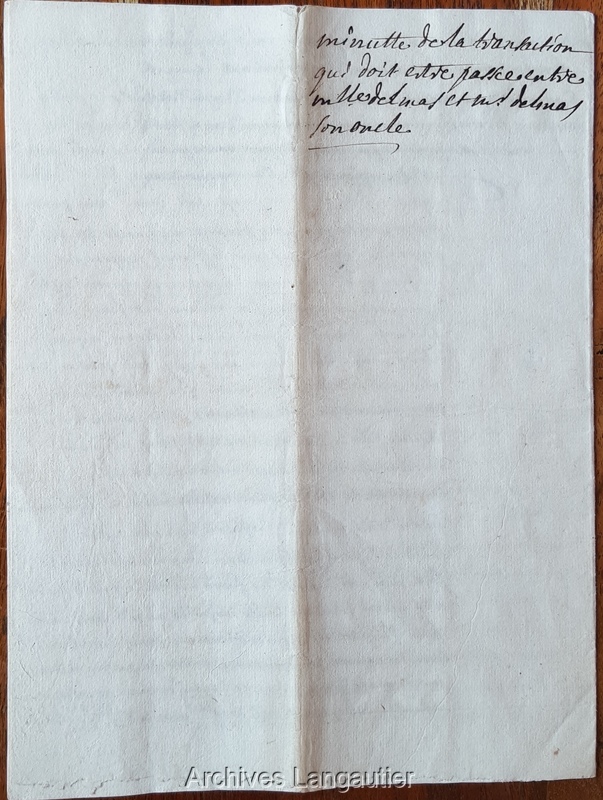 minutte de la transaction
qui doit estre passee entre
mlle delmas et mr delmas
son oncle
Archives Langautier